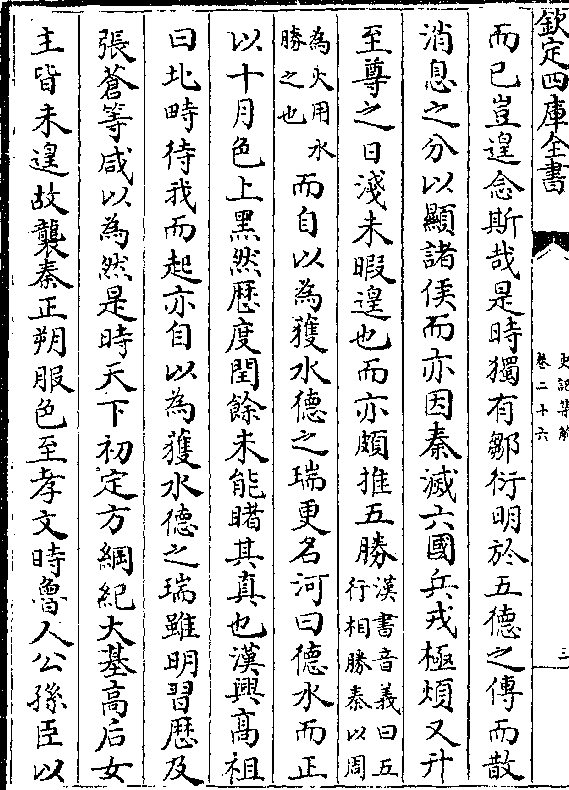 欽定四庫全書
史記集解
卷二十六
三
而已豈遑念斯哉是時獨有鄒衍明於五德之傳而散
消息之分以顯諸侯而亦因秦滅六國兵戎極煩又升
至尊之日淺未暇遑也而亦頗推五勝漢書音義曰五行相勝秦以周
為火用水勝之也而自以為獲水德之瑞更名河曰德水而正
以十月色上黑然歴度閏餘未能睹其真也漢興髙祖
曰北畤待我而起亦自以為獲水德之瑞雖明習歴及
張蒼等咸以為然是時天下初定方綱紀大基高后女
主皆未遑故襲秦正朔服色至孝文時魯人公孫臣以